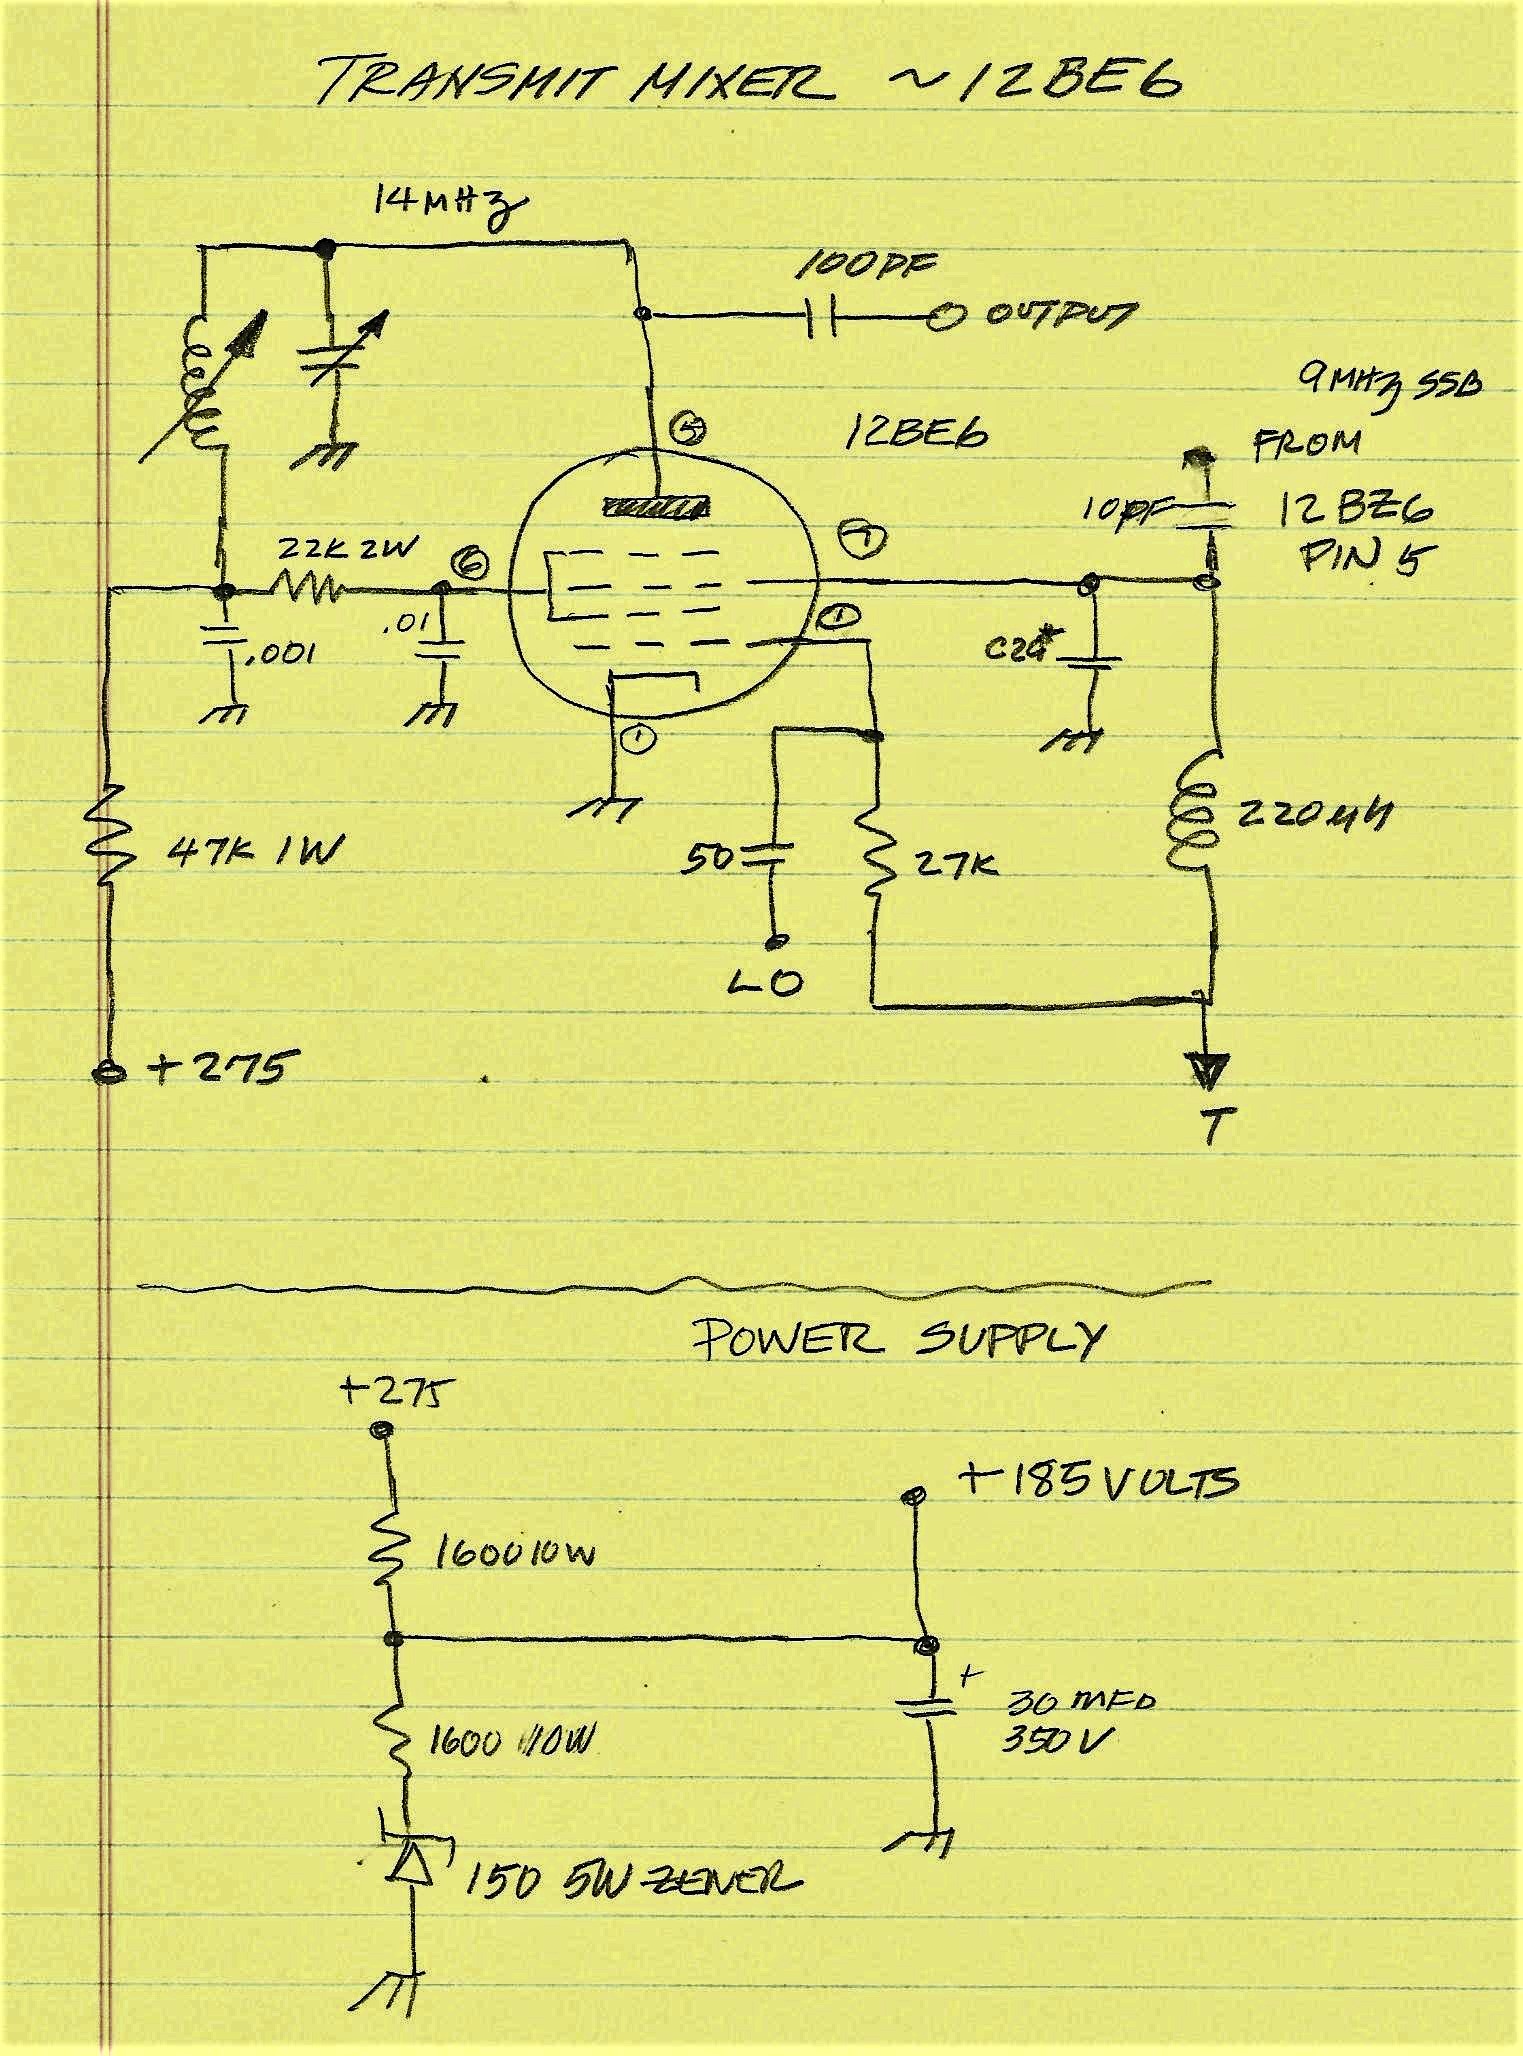 TRANSMIT MIXER ~ 12BE6
14MHz
100PF
OUTPUT
9MHz SSB
FROM
12BZ6
PIN 5
10pF
12BE6
5
7
22K 2W
6
1
.01
.001
C29*
1
47K 1W
50
27K
220µH
LO
+275
T
POWER SUPPLY
+275
+185 VOLTS
1600 10W
+
30 MFD
350V
1600 10W
150 5W ZENER